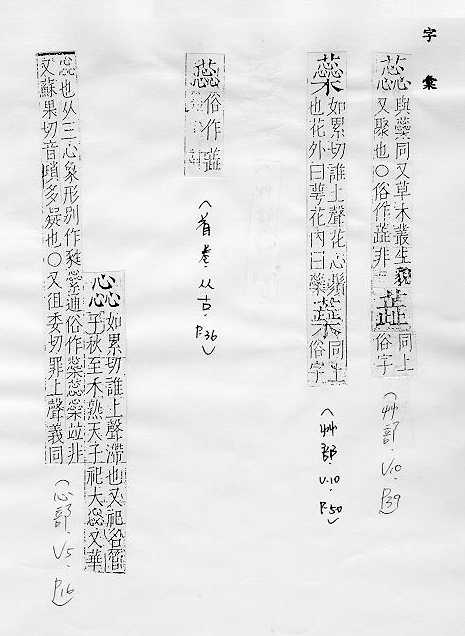 字彙
蕊 與蘂同又草木叢生貌
又聚也○俗作蕋非
蕋 同上
俗字
蘂 如累切誰上聲花心鬚
也花外曰萼花內曰蘂
蕋 同上
俗字
(艸部.V.10.P.39)
(艸部.V.10.P.50)
蕊 俗作蕋
(首卷.从古.P.36)
惢 如累切誰上聲滯也又祀名管
子秋至禾熟天子祀大惢又華
惢也从三心象形別作甤縈通俗作蘂蕊橤竝非
又蘇果切音瑣多疑也○又徂委切罪上聲義同
(心部.V5.P16)